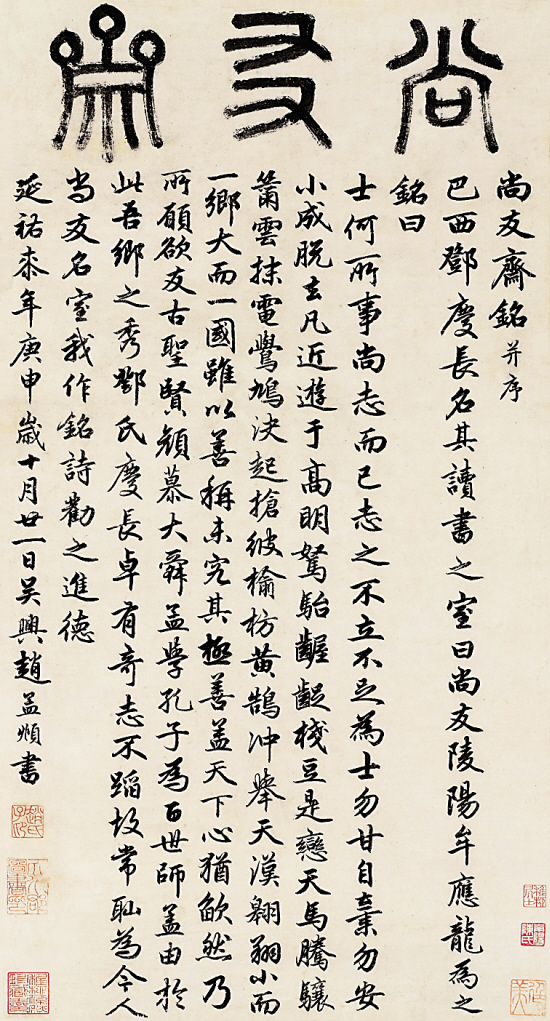 尚友齋
尚友齋銘 并序
巴西鄧慶長名其讀書之室曰尚友陵陽牟應龍為之
銘曰
士何所事尚志而已志之不立不足為士勿甘自棄勿安
小成脫去凡近遊于高明駑駘齷齪棧豆是戀天馬騰驤
籋雲抹電鷽鳩決起搶彼榆枋黃鵠沖舉天漢翱翔小而
一鄉大而一國雖以善稱未究其極善蓋天下心猶欿然乃
所願欲友古聖賢顏慕大舜孟學孔子為百世師蓋由於
此吾鄉之秀鄧氏慶長卓有奇志不蹈故常耻為今人
尚友名室我作銘詩勸之進德
延祐柒年庚申歲十月廿一日吳興趙孟頫書
趙氏子昂